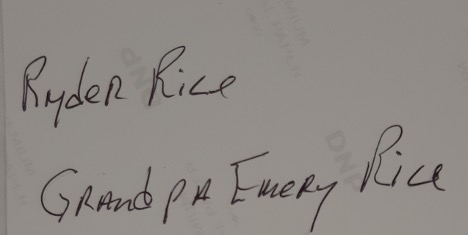 Ryder Rice
Grandpa Emery Rice